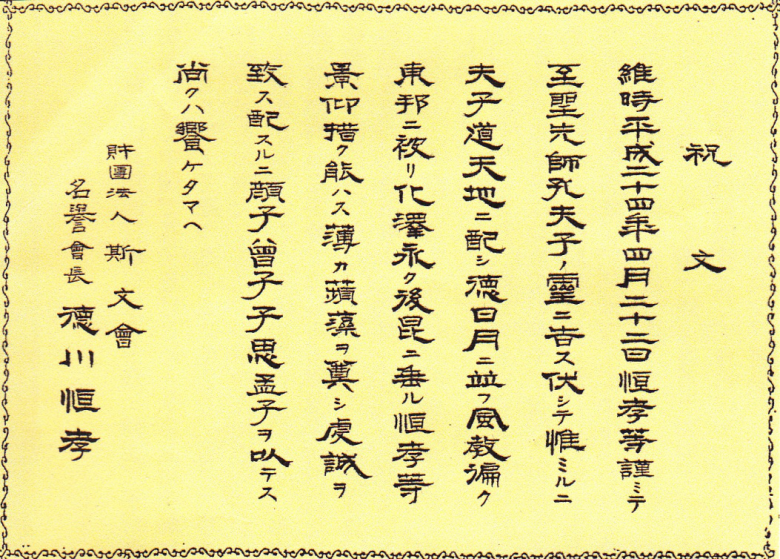 祝文
維時平成二十四年四月二十二日恒孝等謹ミテ
至聖先師孔夫子ノ靈ニ告ス伏シテ惟ミルニ
夫子道天地ニ配シ德日月ニ竝フ風敎徧ク
東邦ニ被リ化澤永ク後昆ニ垂ル恒孝等
景仰措ク能ハス薄カ蘋藻ヲ奠シ虔誠ヲ
致ス配スルニ顔子曾子子思孟子ヲ以テス
尚クハ饗ケタマヘ
財團法人斯文會
名譽會長 德川恒孝